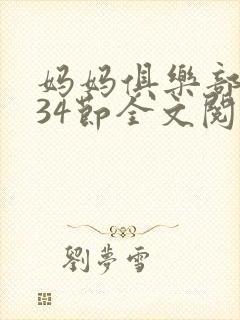 妈妈俱樂部
34節全文閱
劉夢雪